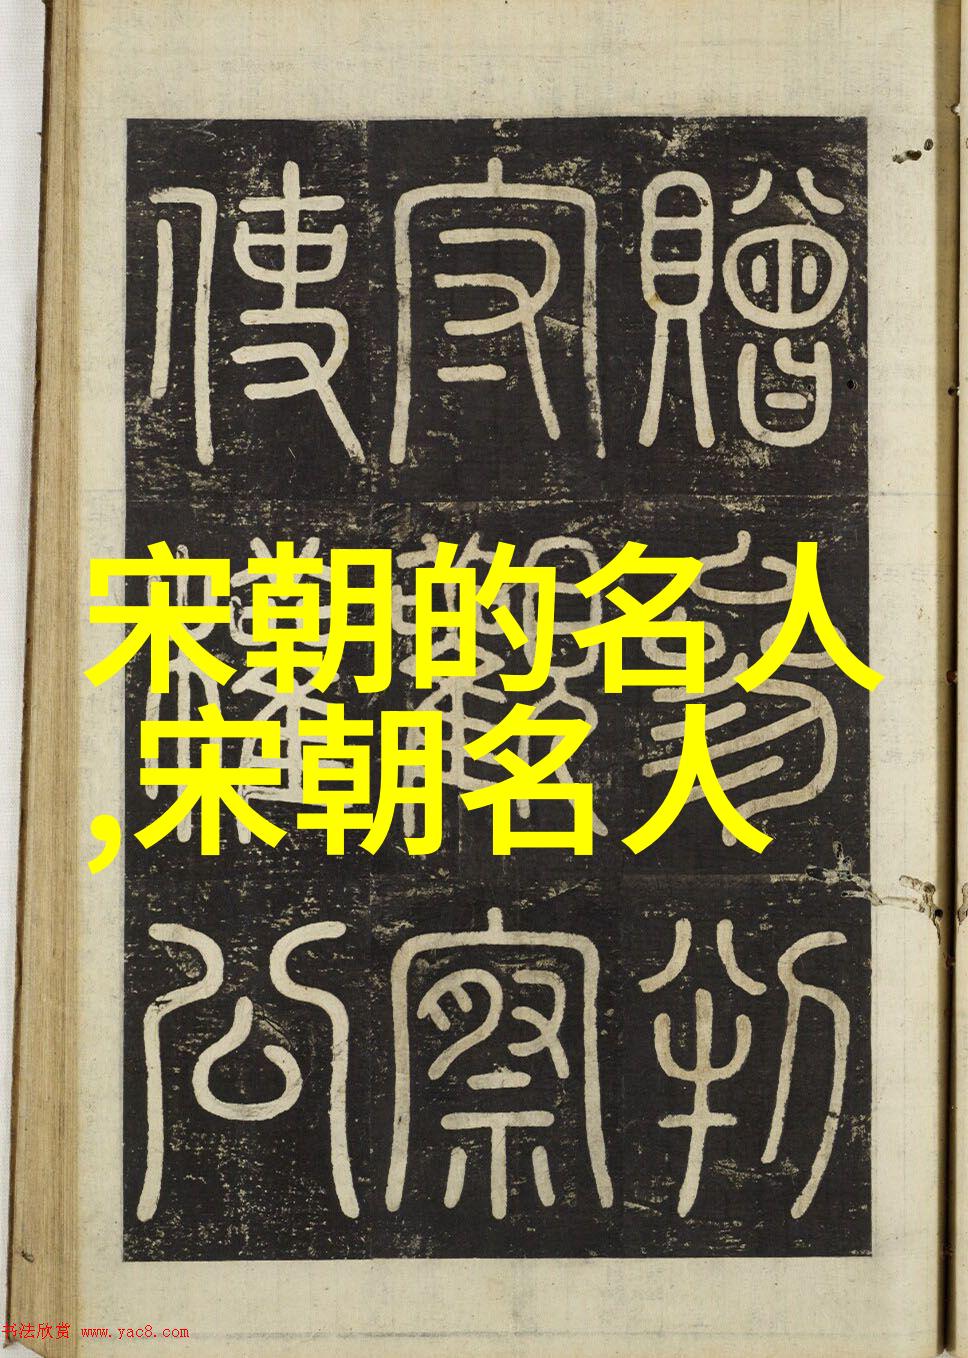 贈
判
觀察
使
公
宋朝的名人
,宋朝名人
书法欣赏 www.yac8.com